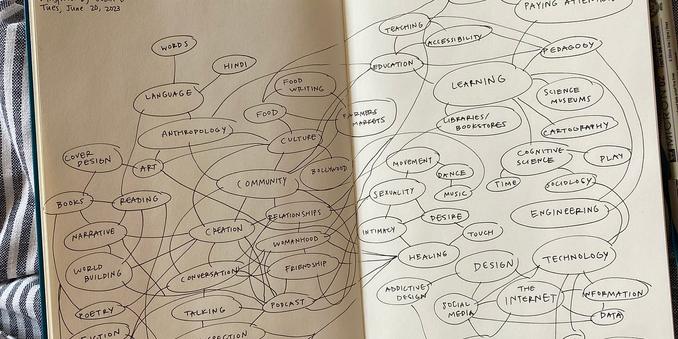 Tues, June 20, 2023
WORDS
HINDI
LANGUAGE
FOOD
WRITING
FOOD
FARMERS
MARKETS
ANTHROPOLOGY
CULTURE
COVER
DESIGN
ART
BOLLYWOOD
COMMUNITY
BOOKS
READING
RELATIONSHIPS
NARRATIVE
CREATION
WOMANHOOD
FRIENDSHIP
WORLD
BUILDING
CONVERSATION
POETRY
TALKING
PODCAST
FICTION
TEACHING
PAYING ATTENTION
ACCESSIBILITY
PEDAGOGY
EDUCATION
LEARNING
SCIENCE
MUSEUMS
LIBRARIES/
BOOKSTORES
CARTOGRAPHY
MOVEMENT
COGNITIVE
SCIENCE
PLAY
DANCE
TIME
SOCIOLOGY
SEXUALITY
MUSIC
DESIRE
ENGINEERING
INTIMACY
TOUCH
HEALING
DESIGN
TECHNOLOGY
ADDICTIVE
DESIGN
SOCIAL
MEDIA
THE
INTERNET
INFORMATION
DATA